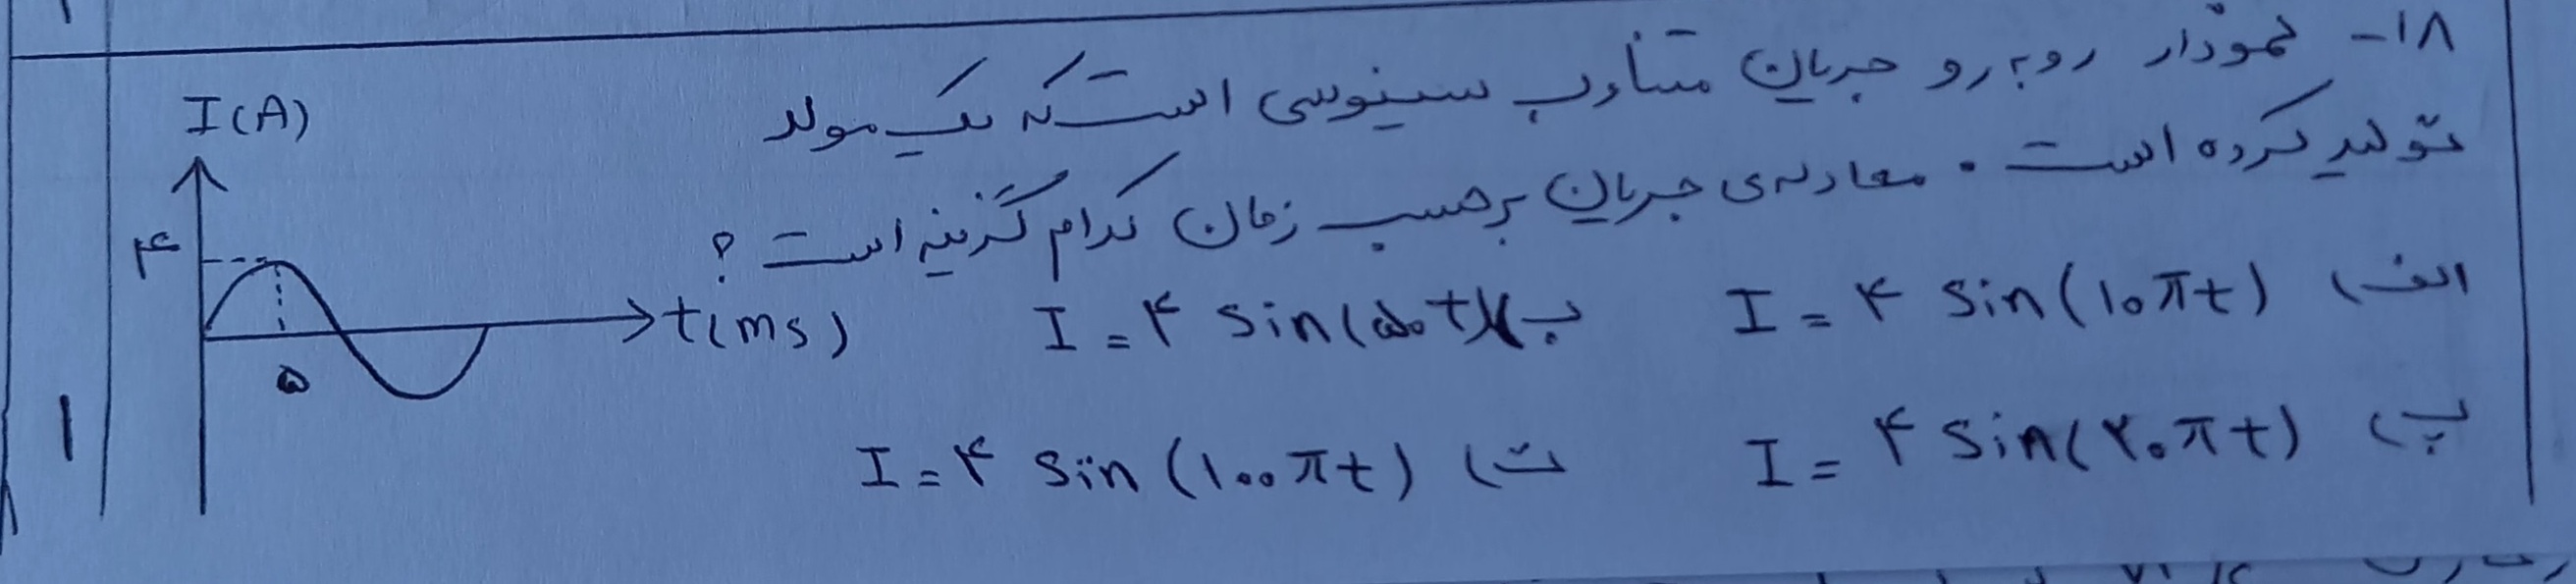 ۱۸- نمودار روبه رو جریان متناوب سینوسی است که یک مولد
تولید کرده است. معادله‌ی جریان برحسب زمان کدام گزینه است؟
الف) I = ۴ sin(۱۰πt) ب) I = ۴ sin(۵۰t)
پ) I = ۴ sin(۲۰πt) ت) I = ۴ sin(۱۰۰πt)
I(A)
۴
t(ms)
۵
۱